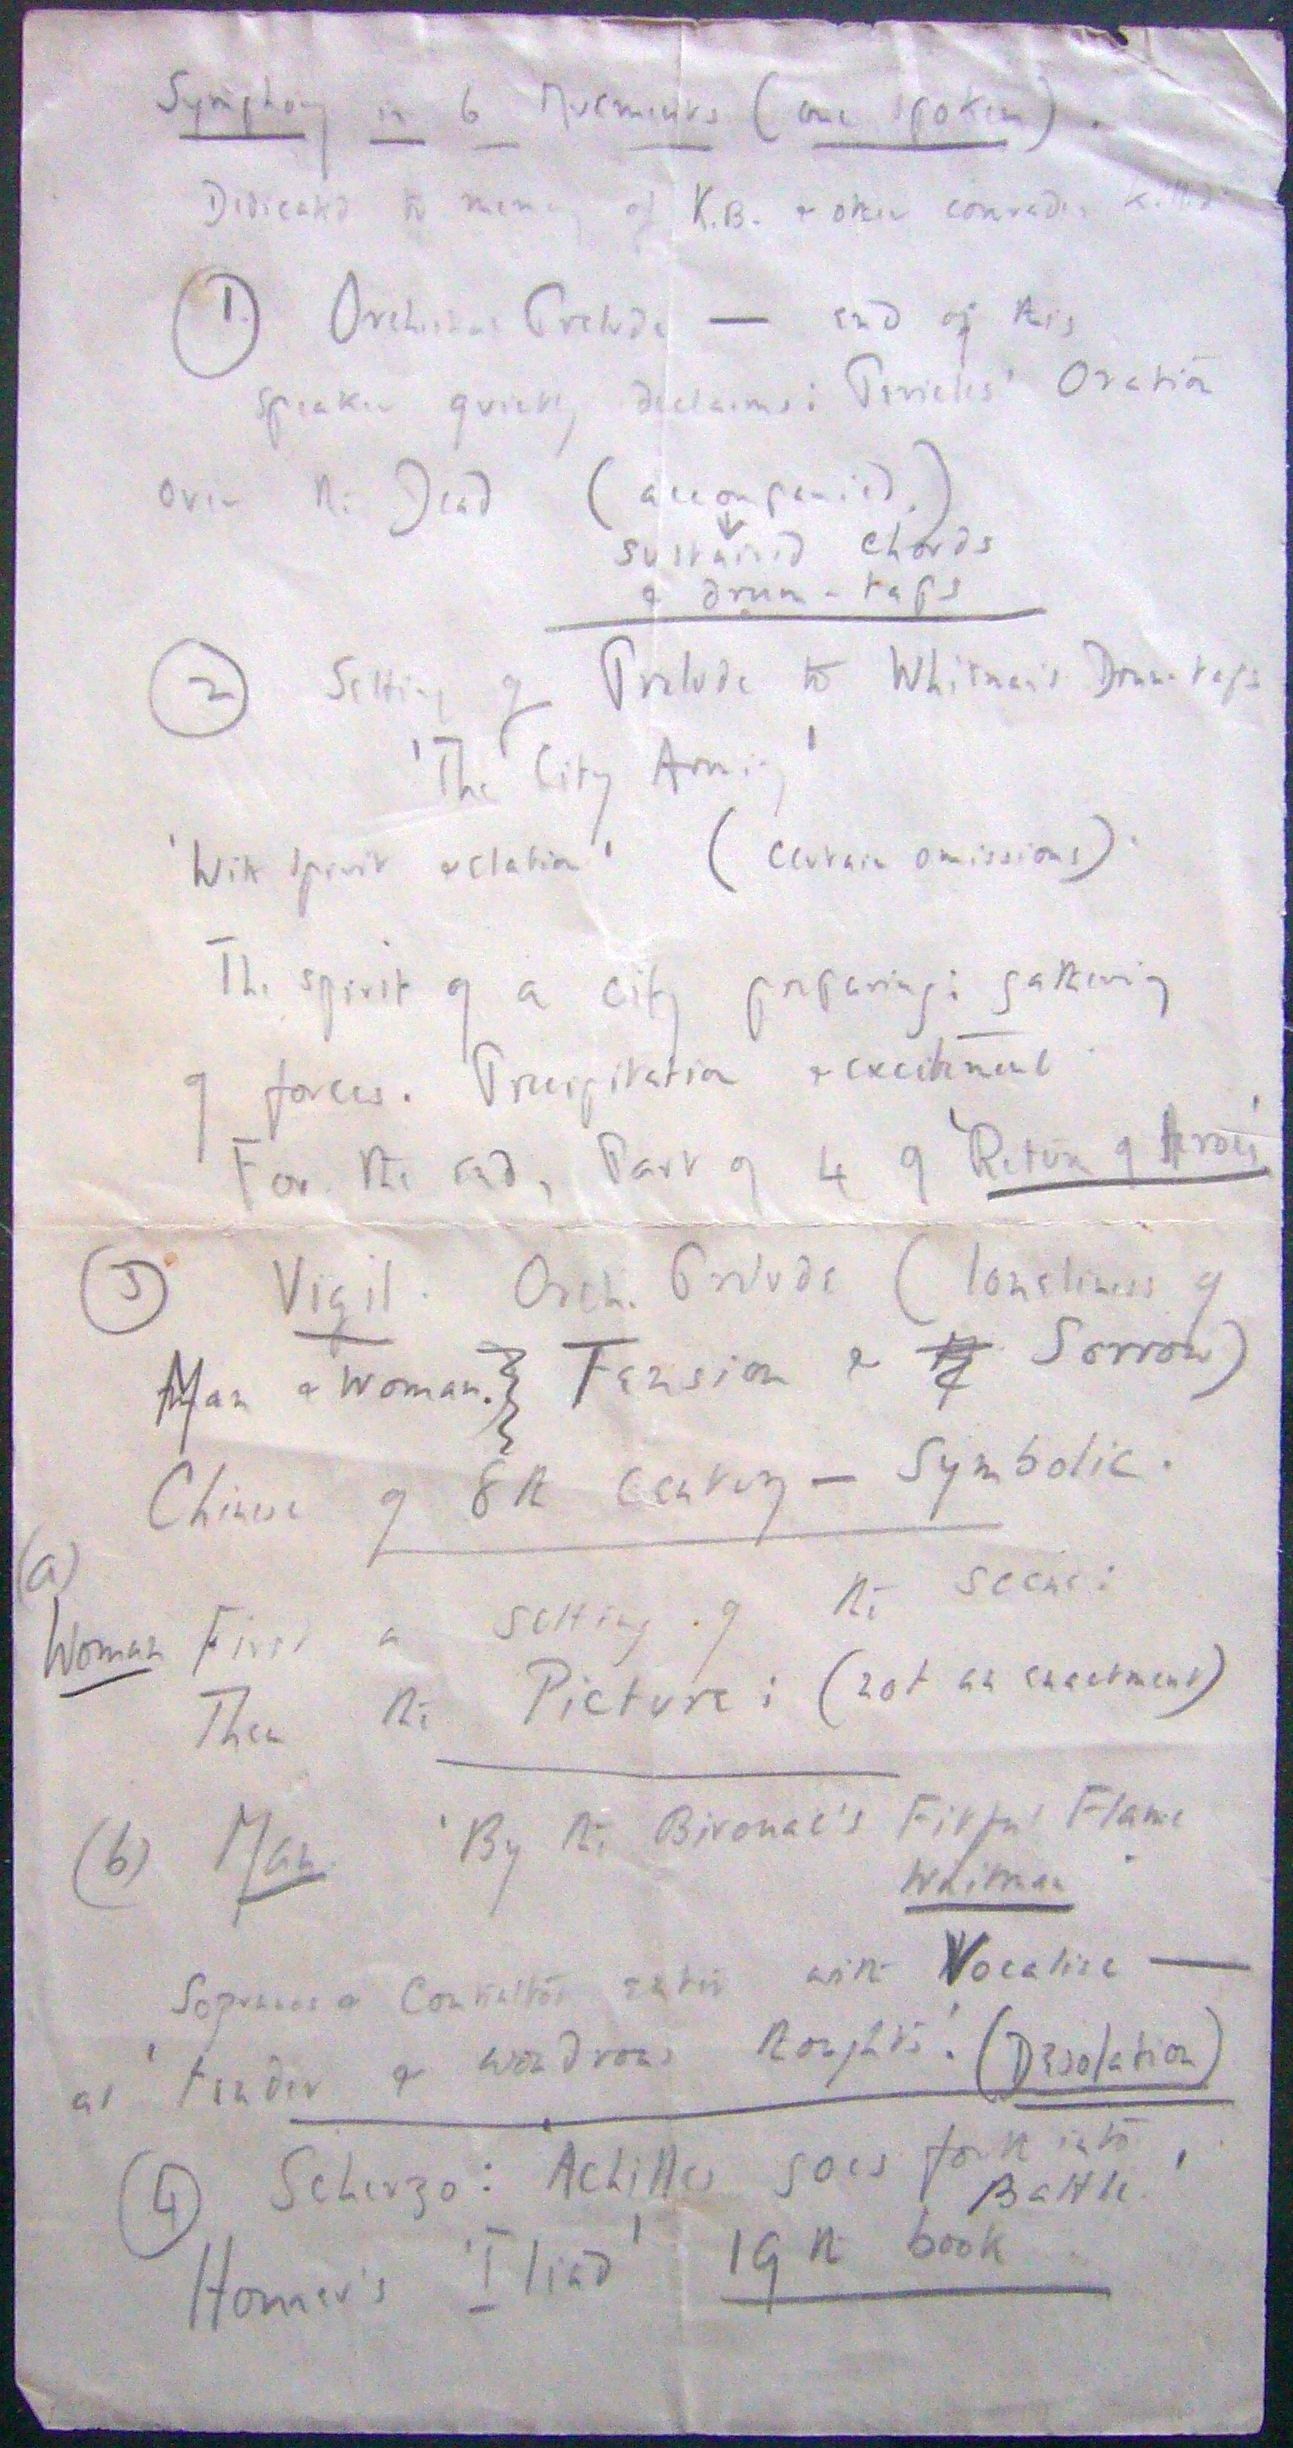 Symphony in 6 Movements (one spoken).
Dedicated to memory of K.B. & other comrades killed
1. Orchestral Prelude — end of this
speaker quietly declaims: Pericles' Oration
over the Dead (accompanied.)
sustained chords
& drum-taps
2 Setting of Prelude to Whitman's Drum-taps
'The City Arming'
'With spirit & elation' (certain omissions)
The spirit of a city preparing: gathering
of forces. Precipitation & excitement
For the end, Part of 4 of 'Return of heroes'
3 Vigil. Orch. Prelude (loneliness of
Man & Woman. } Tension & Sorrow)
Chinese of 8th century — Symbolic.
(a)
Woman First a setting of the scene:
Then the Picture: (not an enactment)
(b) Man 'By the Bivouac's Fitful Flame
Whitman
Sopranos & Contraltos enter with Vocalise —
at 'tender & wondrous thoughts'. (Desolation)
4 Scherzo: Achilles goes forth into
Battle.'
Homer's 'Iliad' 19th book